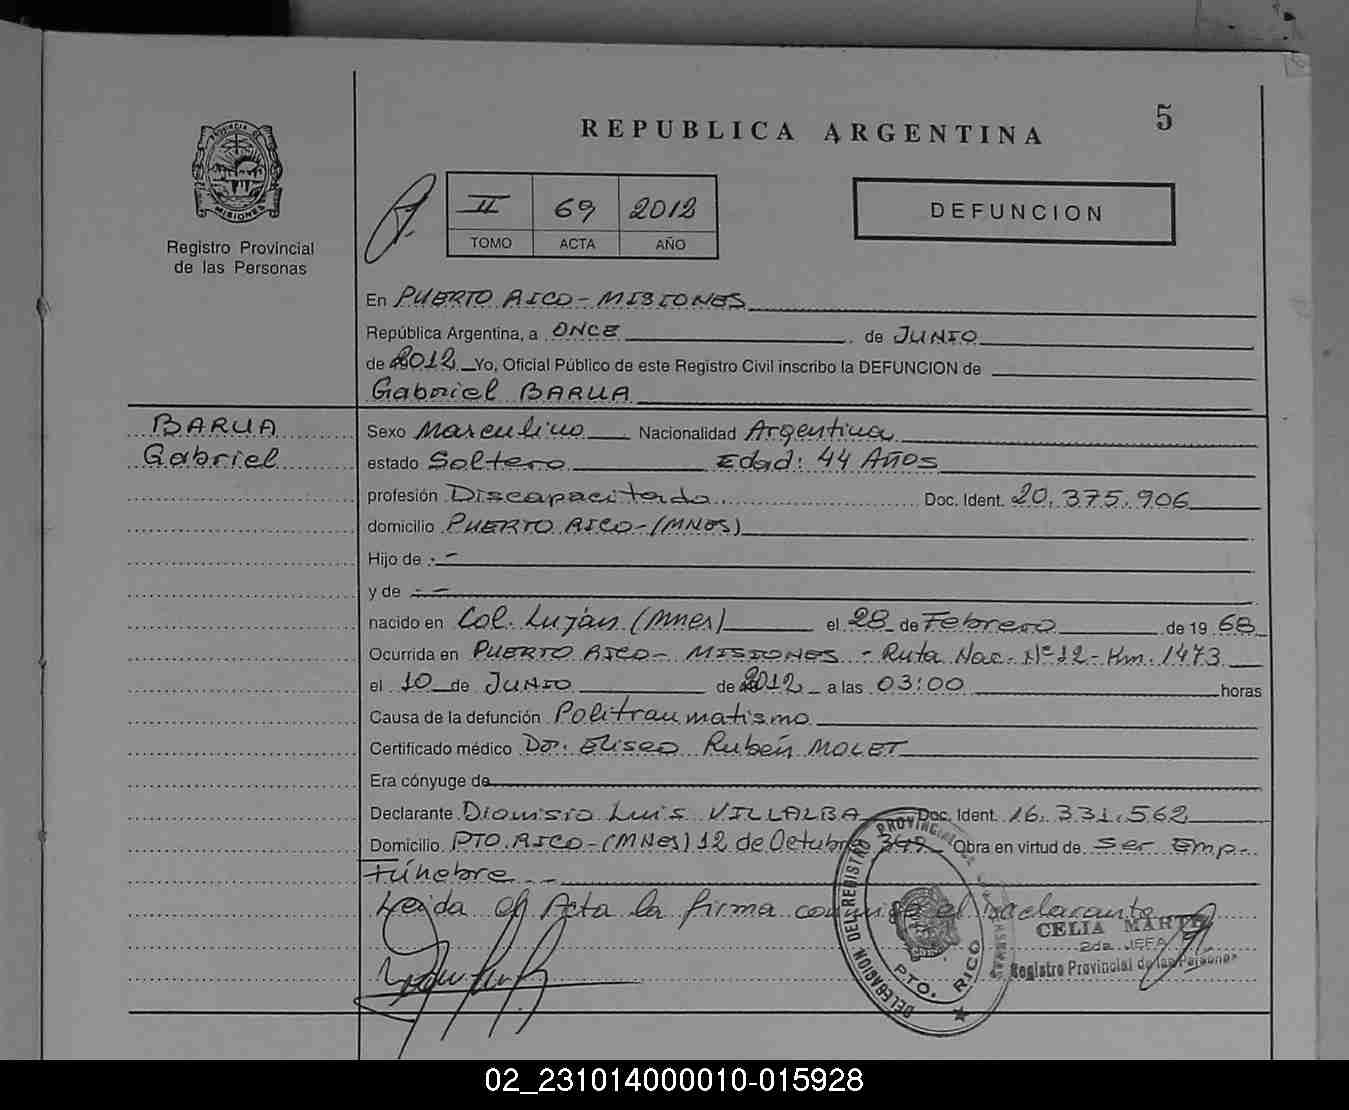 5
REPUBLICA ARGENTINA
PROVINCIA DE
MISIONES
Registro Provincial
de las Personas
II 69 2012
TOMO ACTA AÑO
DEFUNCION
En PUERTO RICO - MISIONES
República Argentina, a ONCE de JUNIO
de 2012 Yo, Oficial Público de este Registro Civil inscribo la DEFUNCION de
Gabriel BARUA
BARUA
Gabriel
Sexo Masculino Nacionalidad Argentina
estado Soltero Edad: 44 AÑOS
profesión Discapacitado Doc. Ident. 20.375.906
domicilio PUERTO RICO - (MNES)
Hijo de . -
y de . -
nacido en Col. Luján (Mnes) el 28 de Febrero de 19 68
Ocurrida en PUERTO RICO - MISIONES - Ruta Nac. Nº 12 - Km. 1473
el 10 de JUNIO de 2012 a las 03:00 horas
Causa de la defunción Politraumatismo
Certificado médico Dr. Eliseo Rubén MOLET
Era cónyuge de
Declarante Dionisio Luis VILLALBA Doc. Ident. 16.331.562
Domicilio PTO. RICO - (MNES) 12 de Octubre 349 Obra en virtud de Ser Emp.
Fúnebre . -
Leida el Acta la firma conmigo el declarante
CELIA
2da. JEFA
Registro Provincial de las Personas
DELEGACION DEL REGISTRO PROVINCIAL DE LAS PERSONAS
PTO. RICO
02_231014000010-015928